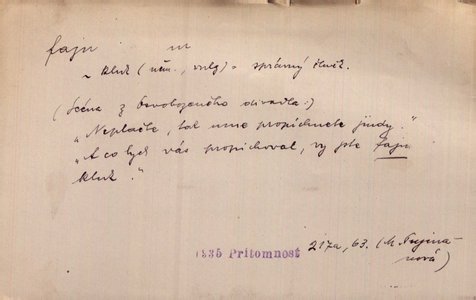 fajn m
~ kluk (něm., vulg) = správný člověk.
(Scéna z Osvobozeného divadla:)
"Neplačte, tak mne propíchnete jindy."
"A co bych vás propichoval, vy jste fajn
kluk."
1935 Přítomnost 217a, 63. (M.
nová)